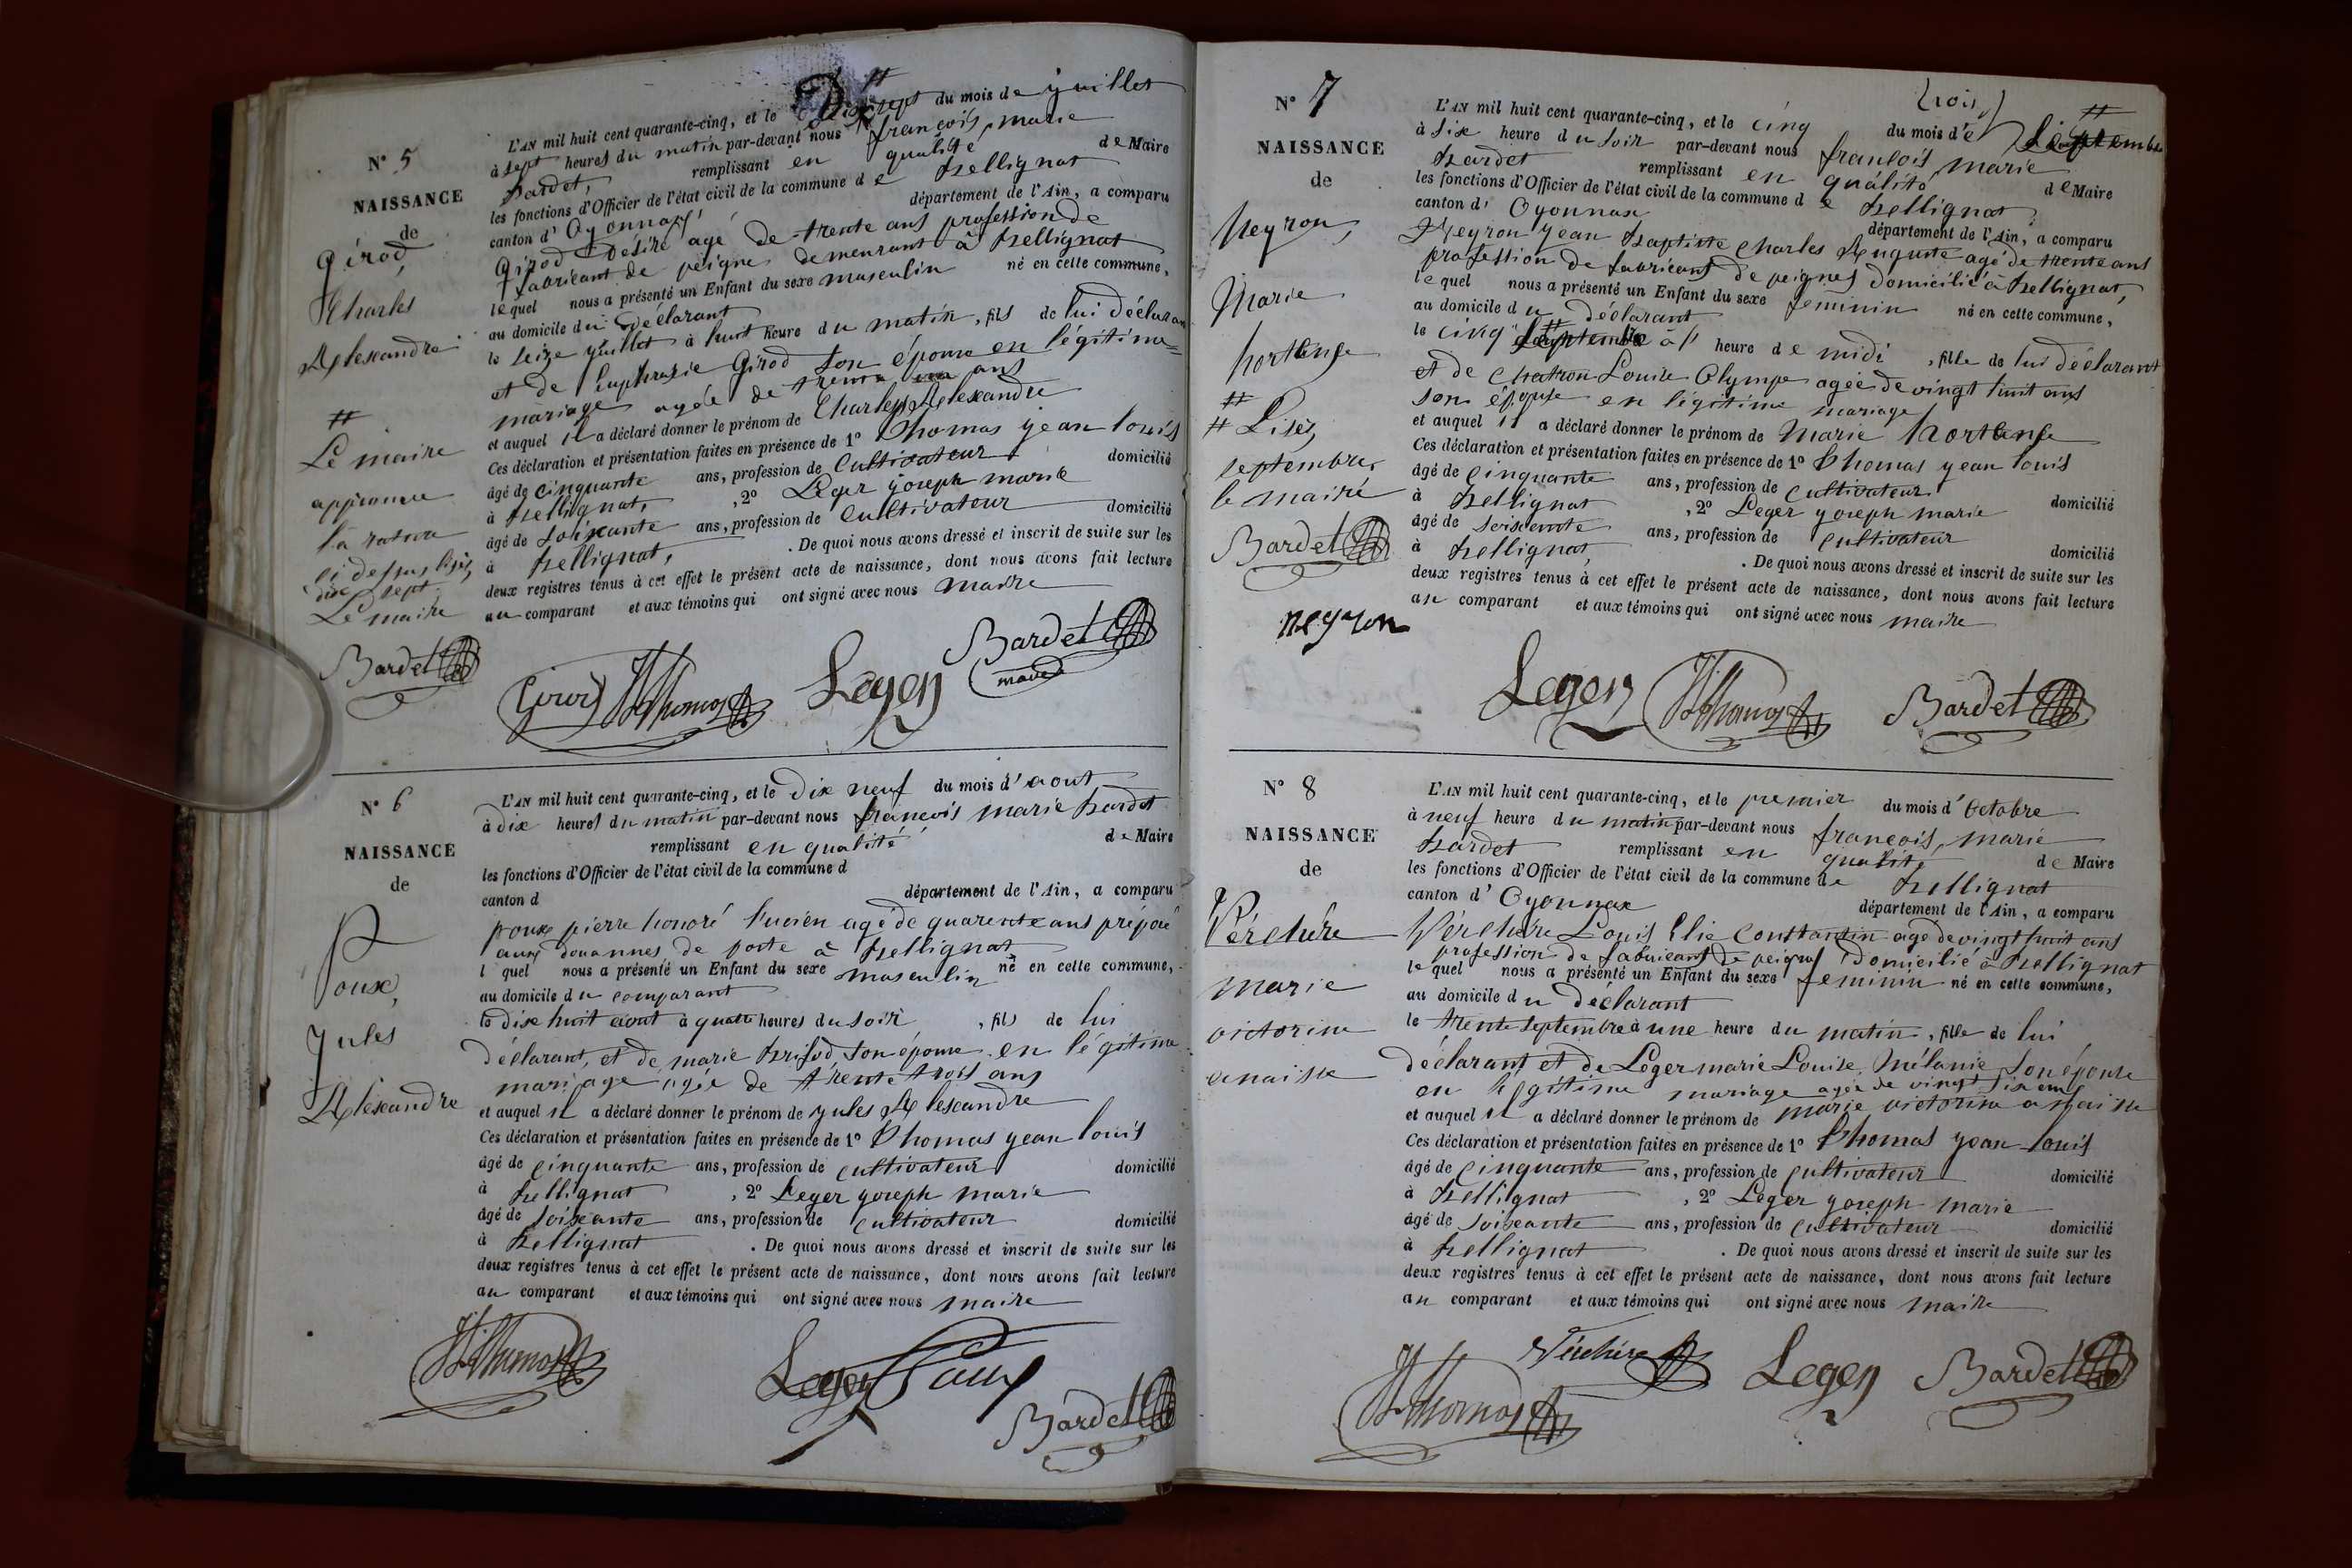 N° 5
NAISSANCE
de
Girod,
Charles
Alexandre
#
Le maire
approuve
la rature
ci dessus lisez,
dix sept
Le maire
Bardet
L'AN mil huit cent quarante-cinq, et le Dix sept # du mois de juillet
à sept heures du matin par-devant nous françois marie
Bardet, remplissant en qualité de Maire
les fonctions d'Officier de l'état civil de la commune de Bellignat
canton d' Oyonnax département de l'Ain, a comparu
Girod Désiré agé de trente ans profession de
fabricant de peigne demeurant à Bellignat
lequel nous a présenté un Enfant du sexe masculin né en cette commune,
au domicile du déclarant
le seize juillet à huit heure du matin, fils de lui déclarant
et de Euphrasie Girod son épouse en légitime
mariage agée de trente ans
et auquel il a déclaré donner le prénom de Charles Alexandre
Ces déclaration et présentation faites en présence de 1° Thomas jean louis
âgé de cinquante ans, profession de cultivateur domicilié
à Bellignat, , 2° Leger joseph marie
âgé de soixante ans, profession de cultivateur domicilié
à Bellignat, . De quoi nous avons dressé et inscrit de suite sur les
deux registres tenus à cet effet le présent acte de naissance, dont nous avons fait lecture
au comparant et aux témoins qui ont signé avec nous maire
Girod JLThomas Leger Bardet
maire
N° 6
NAISSANCE
de
Poux,
Jules
Alexandre
L'AN mil huit cent quarante-cinq, et le dix neuf du mois d'aout
à dix heures du matin par-devant nous françois marie Bardet
remplissant en qualité de Maire
les fonctions d'Officier de l'état civil de la commune d
canton d département de l'Ain, a comparu
poux pierre honoré lucien agé de quarente ans préposé
aux douannes de poste à Bellignat
l quel nous a présenté un Enfant du sexe masculin né en cette commune,
au domicile du comparant
le dix huit aout à quatre heures du soir , fils de lui
déclarant, et de marie son épouse en légitime
mariage agée de trente trois ans
et auquel il a déclaré donner le prénom de jules Alexandre
Ces déclaration et présentation faites en présence de 1° Thomas jean louis
âgé de cinquante ans, profession de cultivateur domicilié
à Bellignat , 2° Leger joseph marie
âgé de soixante ans, profession de cultivateur domicilié
à Bellignat . De quoi nous avons dressé et inscrit de suite sur les
deux registres tenus à cet effet le présent acte de naissance, dont nous avons fait lecture
au comparant et aux témoins qui ont signé avec nous maire
JLThomas Leger Poux
Bardet
N° 7
NAISSANCE
de
Neyron,
Marie
hortense
#
# Lisez,
septembre,
le maire
Bardet
neyron
L'AN mil huit cent quarante-cinq, et le cinq du mois de septembre #
à six heure du soir par-devant nous françois marie
Bardet remplissant en qualité de Maire
les fonctions d'Officier de l'état civil de la commune de Bellignat
canton d' Oyonnax département de l'Ain, a comparu
Neyron jean Baptiste Charles Auguste agé de trente ans
profession de fabricant de peignes domicilié à Bellignat,
lequel nous a présenté un Enfant du sexe feminin né en cette commune,
au domicile du déclarant
le cinq septembre # à l' heure de midi , fille de lui déclarant
et de Chatron Louise Olympe agée de vingt huit ans
son épouse en légitime mariage
et auquel il a déclaré donner le prénom de Marie hortense
Ces déclaration et présentation faites en présence de 1° Thomas jean louis
âgé de cinquante ans, profession de cultivateur domicilié
à Bellignat , 2° Leger joseph marie
âgé de soixante ans, profession de cultivateur domicilié
à Bellignat, . De quoi nous avons dressé et inscrit de suite sur les
deux registres tenus à cet effet le présent acte de naissance, dont nous avons fait lecture
au comparant et aux témoins qui ont signé avec nous maire
Leger JLThomas Bardet
N° 8
NAISSANCE
de
Verchère
marie
victorine
anaisse
L'AN mil huit cent quarante-cinq, et le premier du mois d'Octobre
à neuf heure du matin par-devant nous françois marie
Bardet remplissant en qualité de Maire
les fonctions d'Officier de l'état civil de la commune de Bellignat
canton d' Oyonnax département de l'Ain, a comparu
Verchère Louis Elie Constantin agé de vingt huit ans
profession de fabricant de peignes domicilié à Bellignat
lequel nous a présenté un Enfant du sexe feminin né en cette commune,
au domicile du déclarant
le trente septembre à une heure du matin, fille de lui
déclarant et de Leger marie Louise Mélanie son épouse
en légitime mariage agée de vingt six ans
et auquel il a déclaré donner le prénom de marie victorine anaisse
Ces déclaration et présentation faites en présence de 1° Thomas jean louis
âgé de cinquante ans, profession de cultivateur domicilié
à Bellignat , 2° Leger joseph marie
âgé de soixante ans, profession de cultivateur domicilié
à Bellignat . De quoi nous avons dressé et inscrit de suite sur les
deux registres tenus à cet effet le présent acte de naissance, dont nous avons fait lecture
au comparant et aux témoins qui ont signé avec nous maire
Verchère Leger Bardet
JLThomas